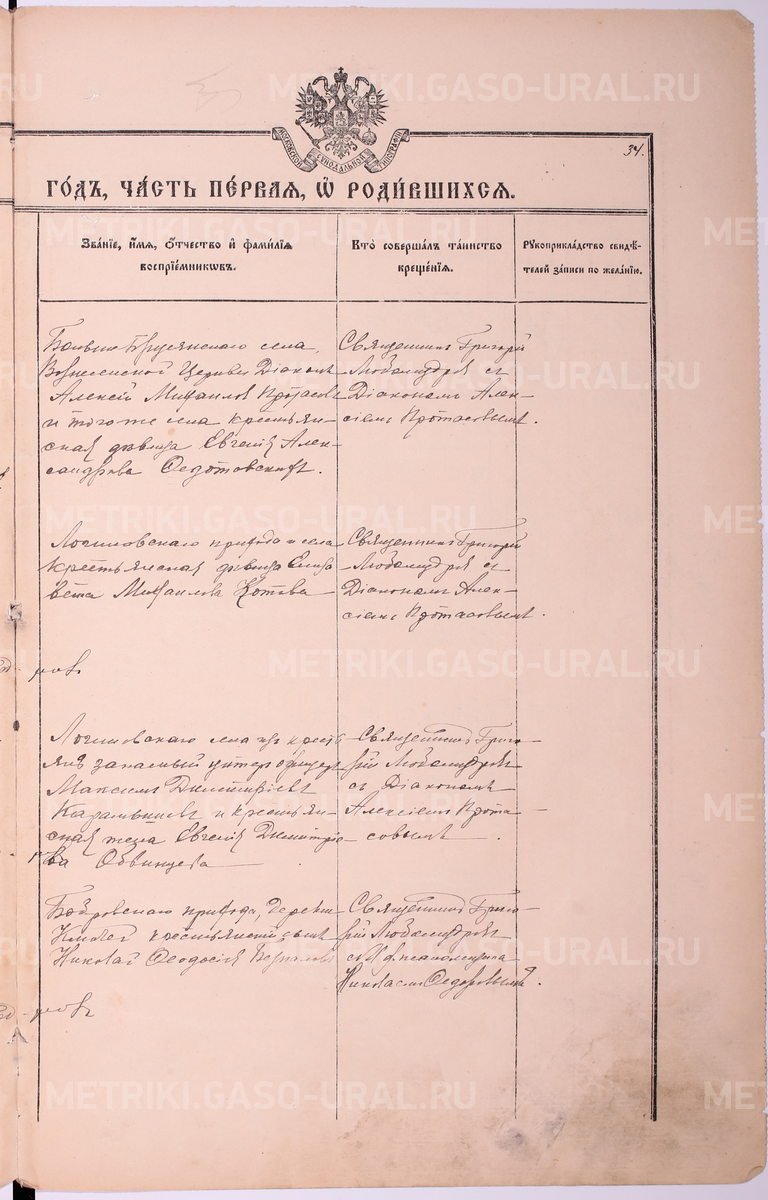 34.
МОСКОВСКОЙ СѴНОДАЛЬНОЙ ТИПОГРАФІИ
ГО́ДЪ, ЧА́СТЬ ПЕ́РВАЯ, Ѡ҆ РОДИ́ВШИХСЯ.
Зва́нїе, и҆́мя, ѻ҆́тчество и҆ фами́лїя
воспрїе́мникѡвъ.
Кто̀ соверша́лъ та́инство
креще́нїя.
Рꙋкоприкла́дство свидѣ́-
телей за́писи по жела́нїю.
Больше Брусянскаго села,
Вознесенской Церкви Діаконъ
Алексей Михаилов Протасовъ
и тогоже села крестьян-
ская дѣвица Евгенія Алек-
сандрова Федотовскихъ.
Священникъ Григорій
Любомудровъ съ
Діакономъ Алек-
сіемъ Протасовымъ.
Логиновскаго прихода и села
Крестьянская дѣвица Елиза
вета Михаилова Котова
Священникъ Григорій
Любомудровъ съ
Діакономъ Алек-
сіемъ Протасовымъ.
Логиновскаго села изъ кресть
янъ запасный унтеръ офицеръ
Максимъ Димитріевъ
и крестьян-
ская жена Евгенія Димитріе-
ва Обвинцева
Священникъ Григо-
рій Любомудровъ
съ Діакономъ
Алексіемъ Прота-
совымъ.
Бобровскаго прихода, деревни
крестьянскій сынъ
Николай Феодосіевъ
Священникъ Григо-
рій Любомудровъ
съ псаломщика
Николаемъ Федоровымъ.
METRIKI.GASO-URAL.RU